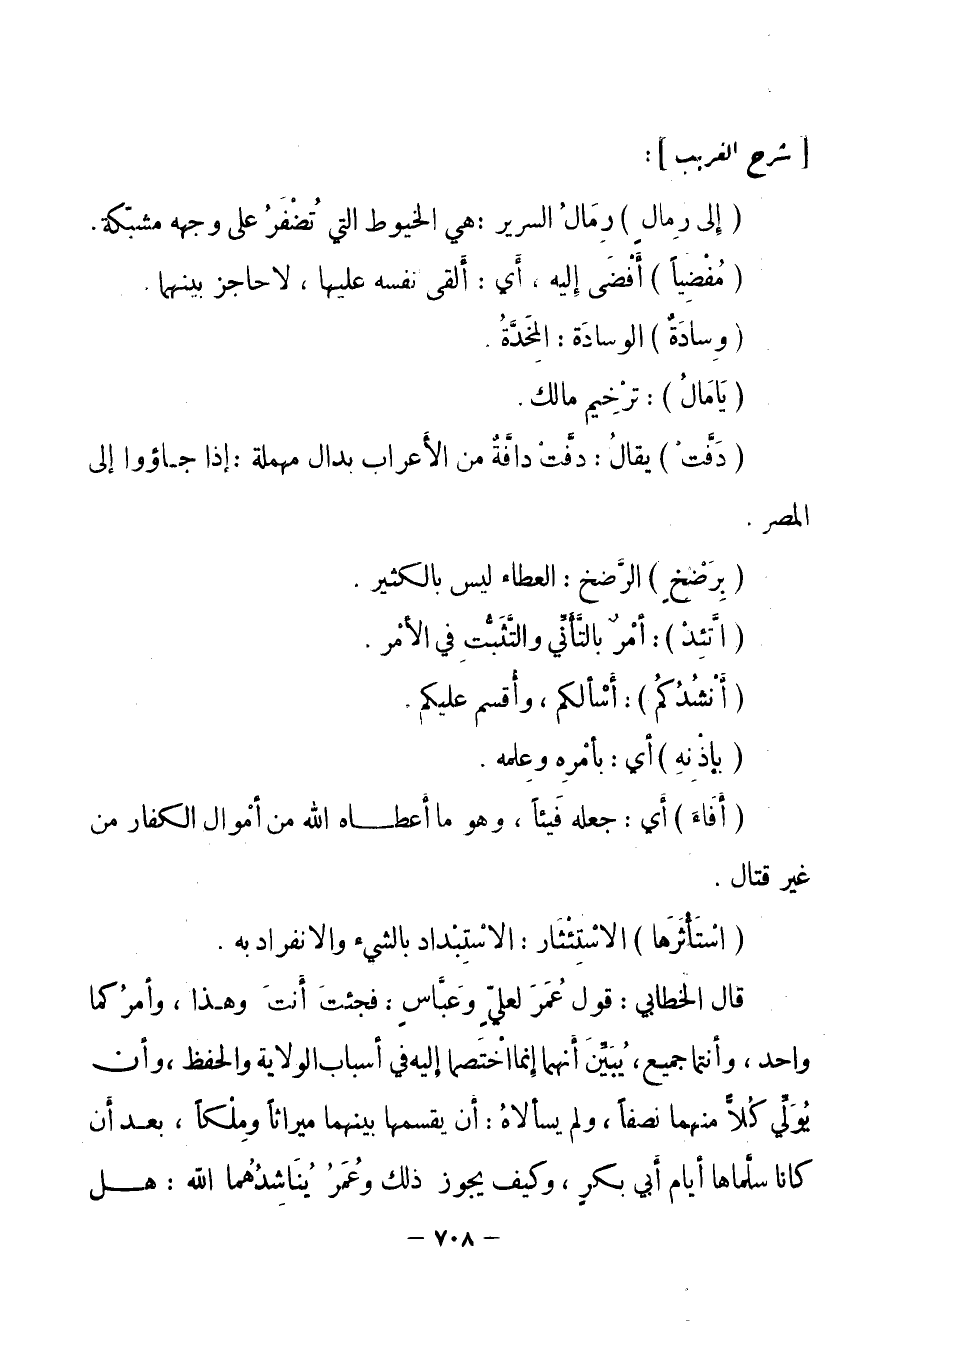 [ شرح الغريب ] :
( إلى رِمالٍ ) رِمَالُ السرير : هي الخيوط التي تُضْفَرُ على وجهه مشبّكة .
( مُفْضِياً ) أَفْضَى إليه ، أَي : أَلقى نفسه عليها ، لاحاجز بينهما .
( وِسادَةٌ ) الوسادَة : المِخَدَّةُ .
( يَامَالُ ) : ترْخِيم مالك .
( دَفَّتْ ) يقالُ : دفَّتْ دافَّةٌ من الأَعراب بدال مهملة : إذا جـاؤوا إلى
المصر .
( بِرَضْخٍ ) الرَّضخ : العطاء ليس بالكثير .
( اتَّئِدْ ) : أمْرٌ بالتَّأَنِّي والتَّثَبُّتِ في الأمْر .
( أَنْشُدُكُمْ ) : أَسْأَلكم ، وأُقسم عليكم .
( بإِذْنِهِ ) أَي : بأمْرِهِ وعِلمه .
( أَفَاءَ ) أَي : جعله فَيئاً ، وهو ما أَعطـــاه الله من أمْوال الكفار من
غير قتال .
( اسْتَأْثَرَها ) الاسْتِئْثَار : الاسْتِبْداد بالشيء والانفراد به .
قال الخطابي : قول عُمَرَ لعليٍّ وَعبَّاسٍ : فجئتَ أَنتَ وهـذا ، وأَمرُكما
واحد ، وأَنتما جميع ، يُبَيِّنَ أَنهما إنما اخْتَصما إليه في أَسباب الولاية والحفظ ، وأَن
يُوَلِّي كُلاًّ منهما نصفاً ، ولم يسألاهُ : أَن يقسمها بينهما ميراثاً ومِلْكاً ، بعـد أَن
كانا سلَّماها أَيام أَبي بكرٍ ، وكيف يجوز ذلك وعُمَرُ يُنَاشِدُهُما الله : هــل
— ٧٠٨ —